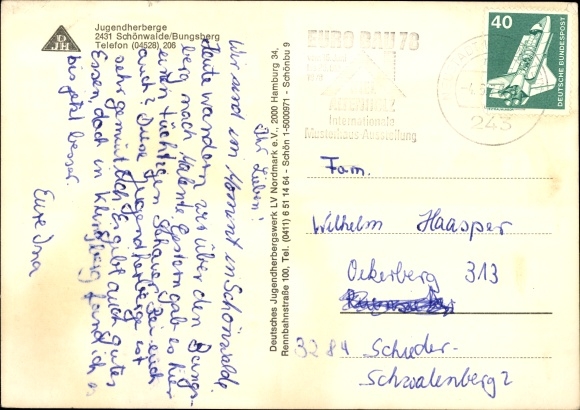 DJH
Jugendherberge
2431 Schönwalde/Bungsberg
Telefon (04528) 206
Ihr Lieben!
Wir sind im Moment in Schönwalde.
Heute wandern wir über den Bungs-
berg nach Malente. Gestern gab es hier
einen tüchtigen Schauer. Bei euch
auch? Diese Jugendherberge ist
sehr gemütlich. Es gibt auch gutes
Essen, doch in Klingberg fand ich es
bis jetzt besser.
Eure Ina
Deutsches Jugendherbergswerk LV Nordmark e.V., 2000 Hamburg 34,
Rennbahnstraße 100, Tel. (0411) 6 51 14 64 - Schön 1-5000971 - Schönbu 9
EURO BAU 78
Internationale
Musterhaus-Ausstellung
243
40
DEUTSCHE BUNDESPOST
Fam.
Wilhelm Haasper
Oekerberg 313
3284 Schieder-
Schwalenberg 2